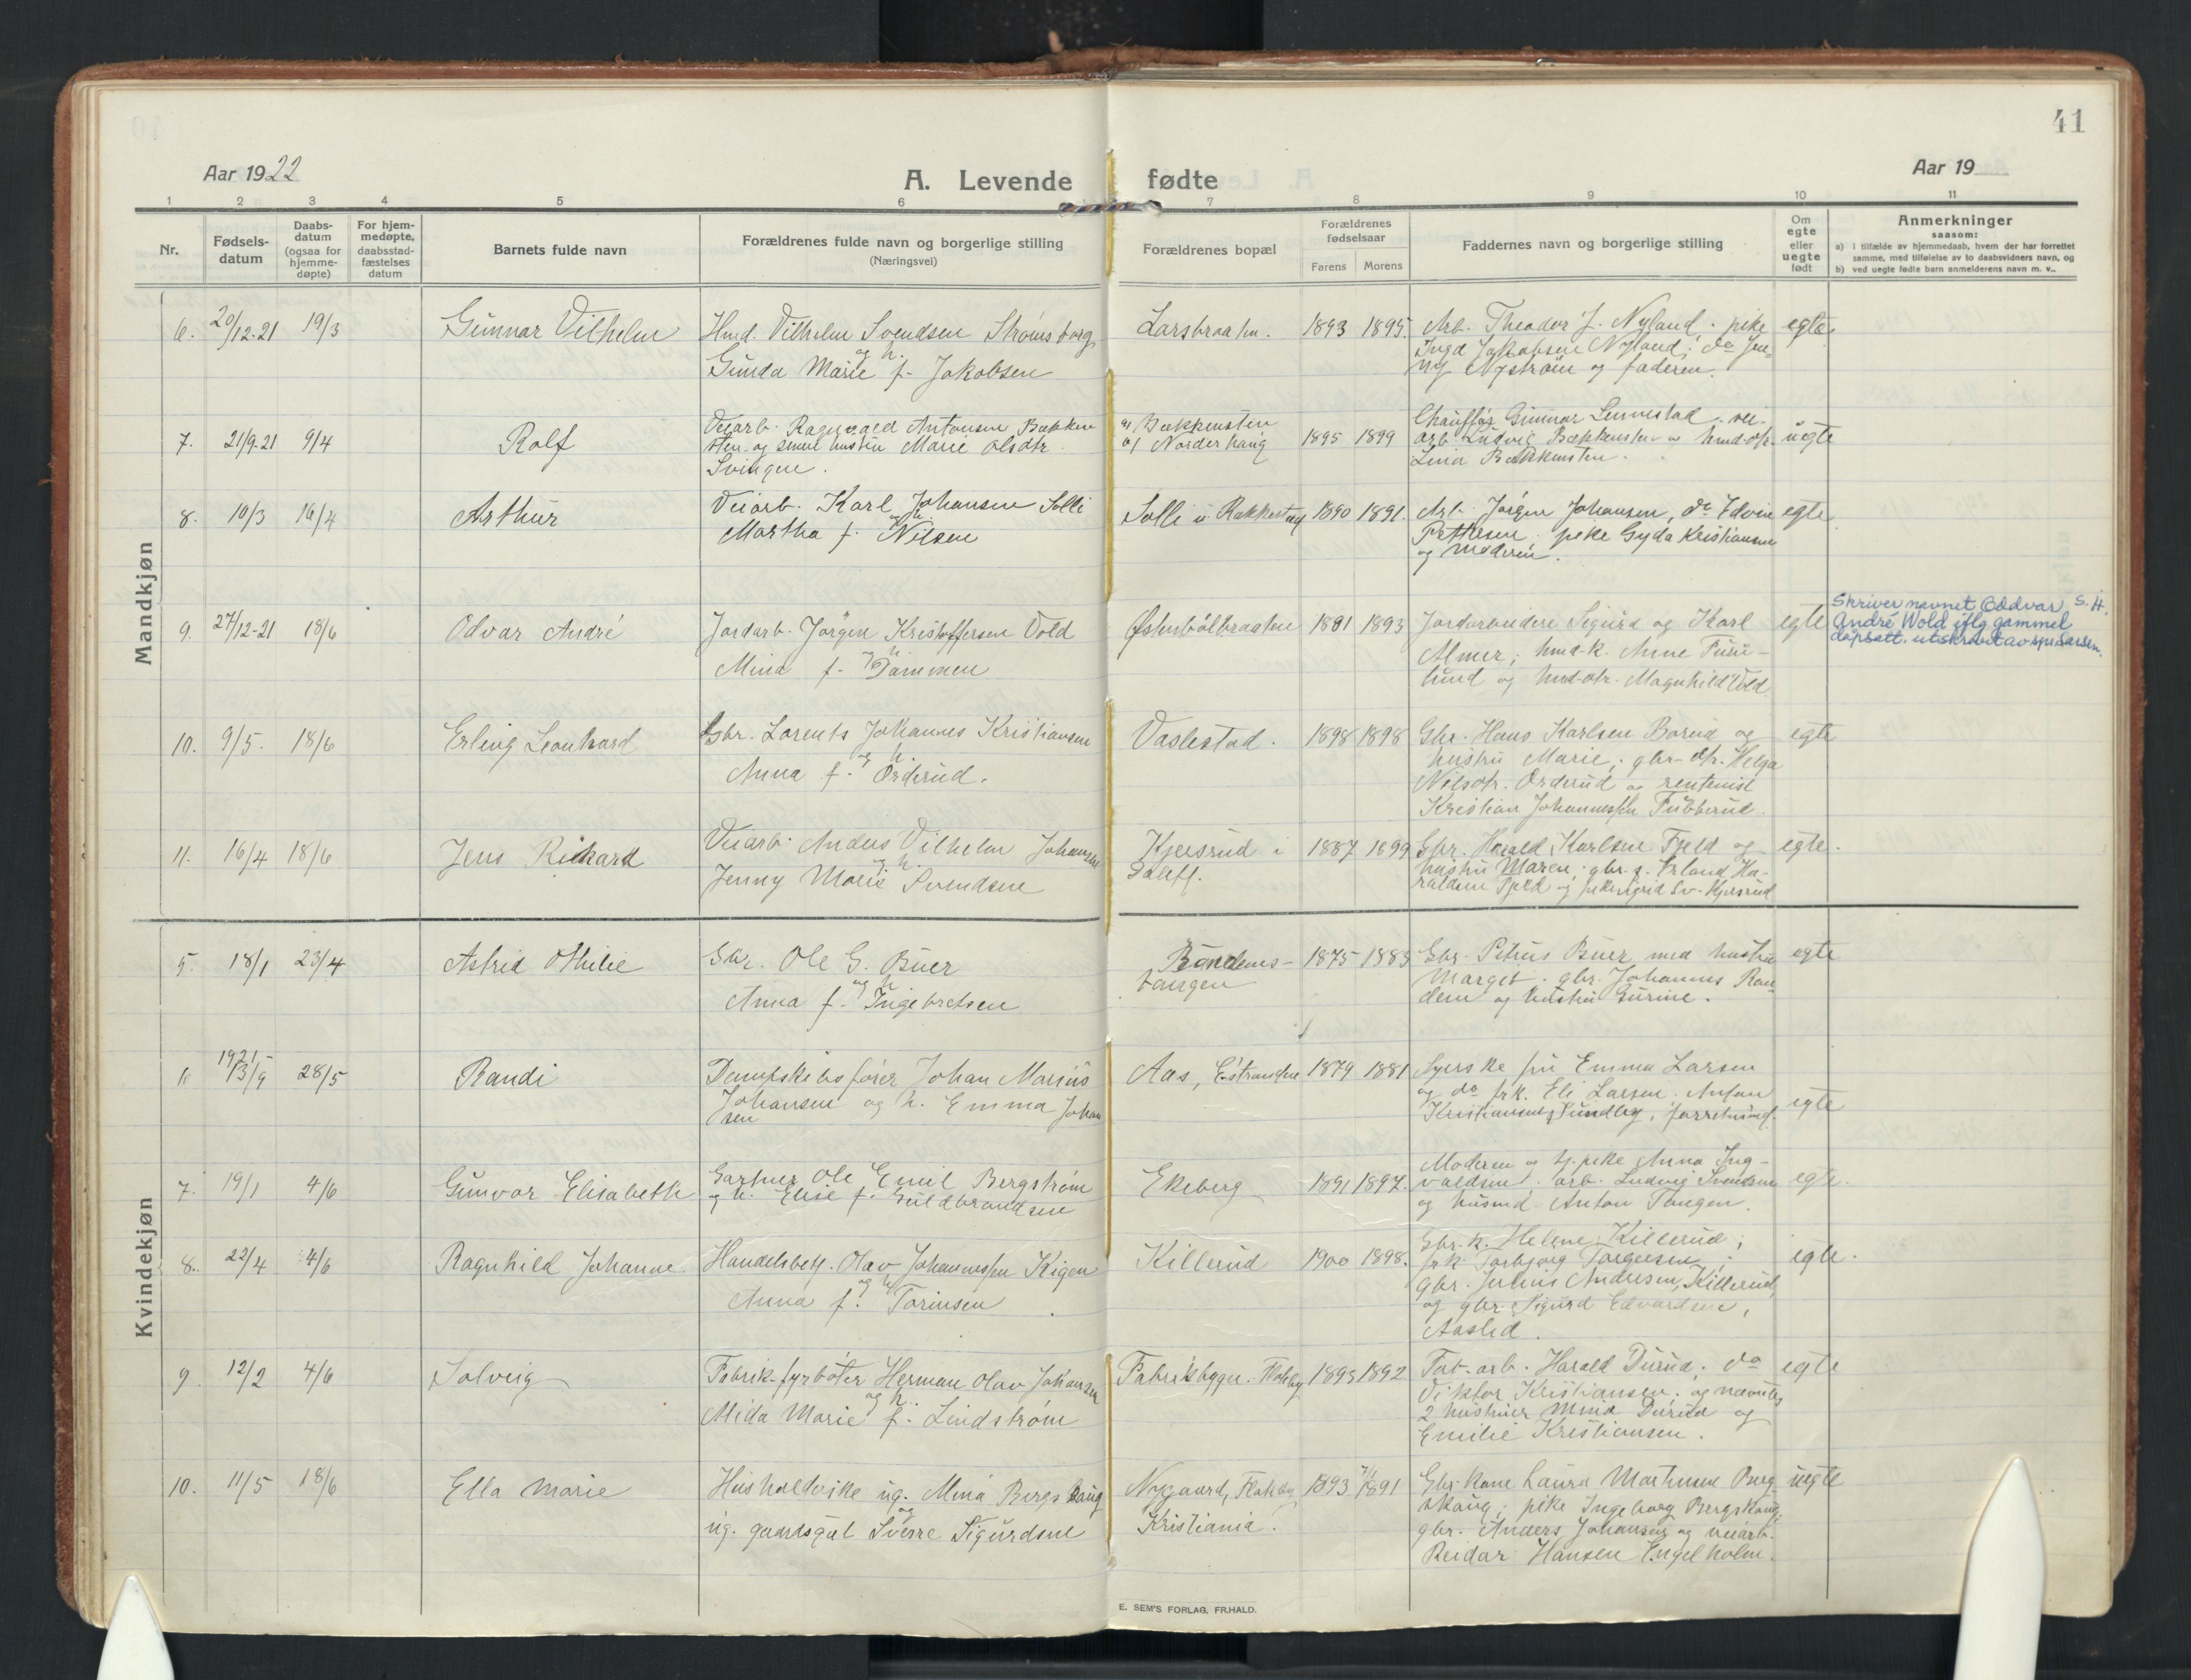 41
Aar 1922
A. Levende fødte
Aar 19
1 2 3 4 5 6 7 8 9 10 11
Nr.
Fødsels-
datum
Daabs-
datum
(ogsaa for
hjemme-
døpte)
For hjem-
medøpte,
daabsstad-
fæstelses
datum
Barnets fulde navn
Forældrenes fulde navn og borgerlige stilling
(Næringsvei)
Forældrenes bopæl
Forældrenes
fødselsaar
Farens Morens
Faddernes navn og borgerlige stilling
Om
egte
eller
uegte
født
Anmerkninger
saasom:
a) i tilfælde av hjemmedaab, hvem der har forrettet
samme, med tilføielse av to daabsvidners navn, og
b) ved uegte fødte barn anmelderens navn m. v..
Mandkjøn
6. 20/12-21 19/3 Gunnar Vilhelm
Hmd. Vilhelm Svendsen Strømsborg
og h.
Gunda Marie f. Jakobsen
Larsbraaten. 1893 1895.
Arb. Theodor J. Nyland; pike
Inga Jakobsen Nyland; do Jen-
ny Nystrøm og faderen.
egte.
7. 21/9-21 9/4 Rolf
Veiarb. Ragnvald Antonsen Bækken
sten og Marie Olsdtr.
Svingen.
a) Bækkensten
b) Norderhaug
1895 1899
Chauffør Gunnar Lunnestad, vei-
arb. Ludvig Bækkensten og hmd-dtr.
Lina Bækkensten.
uegte
8. 10/3 16/4 Arthur
Veiarb. Karl Johansen Solli
og h.
Martha f. Nilsen
Solli i Rakkestad 1890 1891.
Arb. Jørgen Johansen, do Edvin
Pettersen, pike Gyda Kristiansen
og moderen.
egte
9. 27/12-21 18/6 Odvar André
Jordarb. Jørgen Kristoffersen Vold
og h.
Mina f. Dammen
Østenbølbraaten 1891 1893
Jordarbeidere Sigurd og Karl
Almer; hmd-k. Anne Furu-
lund og hmd-dtr. Magnhild Vold.
egte
Skriver navnet Oddvar S.H.
André Wold iflg gammel
dåpsatt. utskrevet av spr. Larsen.
10. 9/5. 18/6 Erling Leonhard
Gbr. Lorents Johannes Kristiansen
og h.
Anna f. Orderud.
Vaslestad. 1898 1898
Gbr. Hans Karlsen Borud og
hustru Marie, gbr-dtr. Helga
Nilsdtr. Orderud og rentenist
Kristian Johannessen Tubberud.
egte
11. 16/4 18/6 Jens Rikard
Veiarb. Anders Vilhelm Johansen
og h.
Jenny Marie Svendsen
Kjersrud i 1887 1899
Gbr. Harald Karlsen Fjeld og
hustru Maren, gbr. s. Erland Ha-
raldsen Fjeld og pike Sigrid Sv. Kjersrud
egte.
Kvindekjøn
5. 18/1 23/4 Astrid Othilie
Gbr. Ole G. Buer
og h.
Anna f. Ingebretsen
tangen
1875 1883
Gbr. Petrus Buer med hustru
Marget. gbr. Johannes Ran-
dem og hustru Gurine.
egte
6 1921 13/9 28/5 Randi
Dampskibsfører Johan Marius
Johansen og h. Emma Johan
sen
Aas, Østranden 1879 1881
Syerske fru Emma Larsen
og do frk. Eli Larsen. Anton
Kristiansen Sundby,
egte
7. 19/1 4/6 Gunvor Elisabeth
Gartner Ole Emil Bergstrøm
og h. Elise f. Guldbrandsen
Ekeberg 1891 1897.
Moderen og tj.pike Anna Ing-
valdsen. arb. Ludvig Svendsen
og husmd. Anton Tangen.
egte.
8. 22/4 4/6 Ragnhild Johanne
Handelsbetj. Olav Johannessen Krigen
og h.
Anna f. Torinsen
Killerud 1900 1898.
Gbr. k. Helene Killerud;
frk. Torbjørg Torgersen;
gbr. Julius Andersen, Killerud,
og gbr. Sigurd Edvardsen,
Aaslid.
egte.
9 12/2 4/6 Solveig
Fabrik-fyrbøter Herman Olav Johansen
og h.
Alida Marie f. Lindstrøm
Fabrikbygn. Flateby 1893 1892
Fab-arb. Harald Durud; do
Viktor Kristiansen; og nævntes
2 hustruer Mina Durud og
Emilie Kristiansen.
egte
10. 11/5 18/6 Ella Marie
Husholderske ug. Mina Bergskaug
og
ug. gaardsgut Sverre Sigurdsen
Nygaard, Flateby
Kristiania.
1893 1891
Gbr. kone Laura Martinsen Berg-
skaug; pike Ingeborg Bergskaug,
gbr. Anders Johansen og veiarb.
Reidar Hansen Engelholm.
uegte
E. SEM'S FORLAG, FR.HALD.